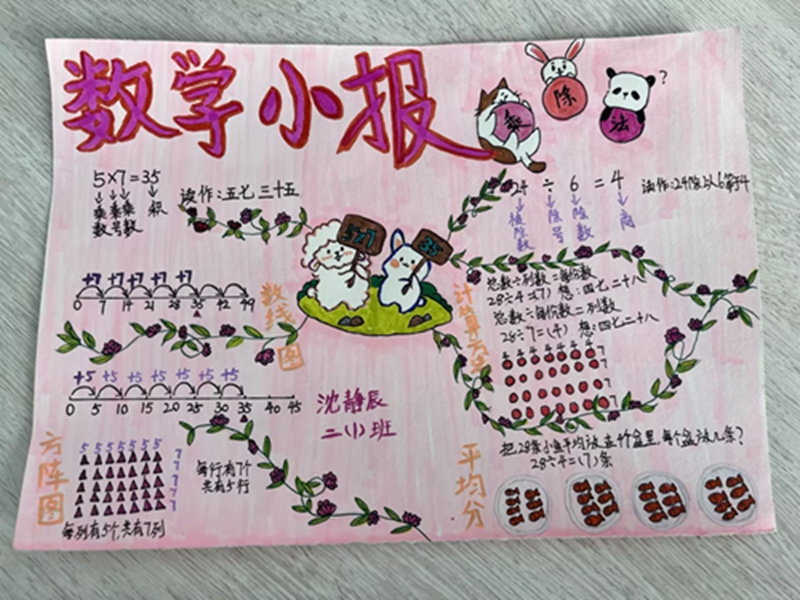 数学小报
乘 除 法 ?
5×7=35
乘数 乘号 乘数 积
读作:五七三十五
24 ÷ 6 = 4
被除数 除号 除数 商
读作:24除以6等于4
5×7
35
+7 +7 +7 +7 +7
0 7 14 21 28 35 42 49
数线图
+5 +5 +5 +5 +5 +5 +5
0 5 10 15 20 25 30 35 40 45
计算
总数÷列数=每份数
28÷4=(7) 想:四七二十八
总数÷每份数=列数
28÷7=(4) 想:四七二十八
4 4 4 4 4 4 4
7
7
7
7
沈静辰
二(1)班
方阵图
5 5 5 5 5 5 5
7
7
7
7
7
每行有7个
共有5行
每列有5个,共有7列
平均分
把28条小鱼平均放在4个盆里,每个盆放几条?
28÷4=(7)条